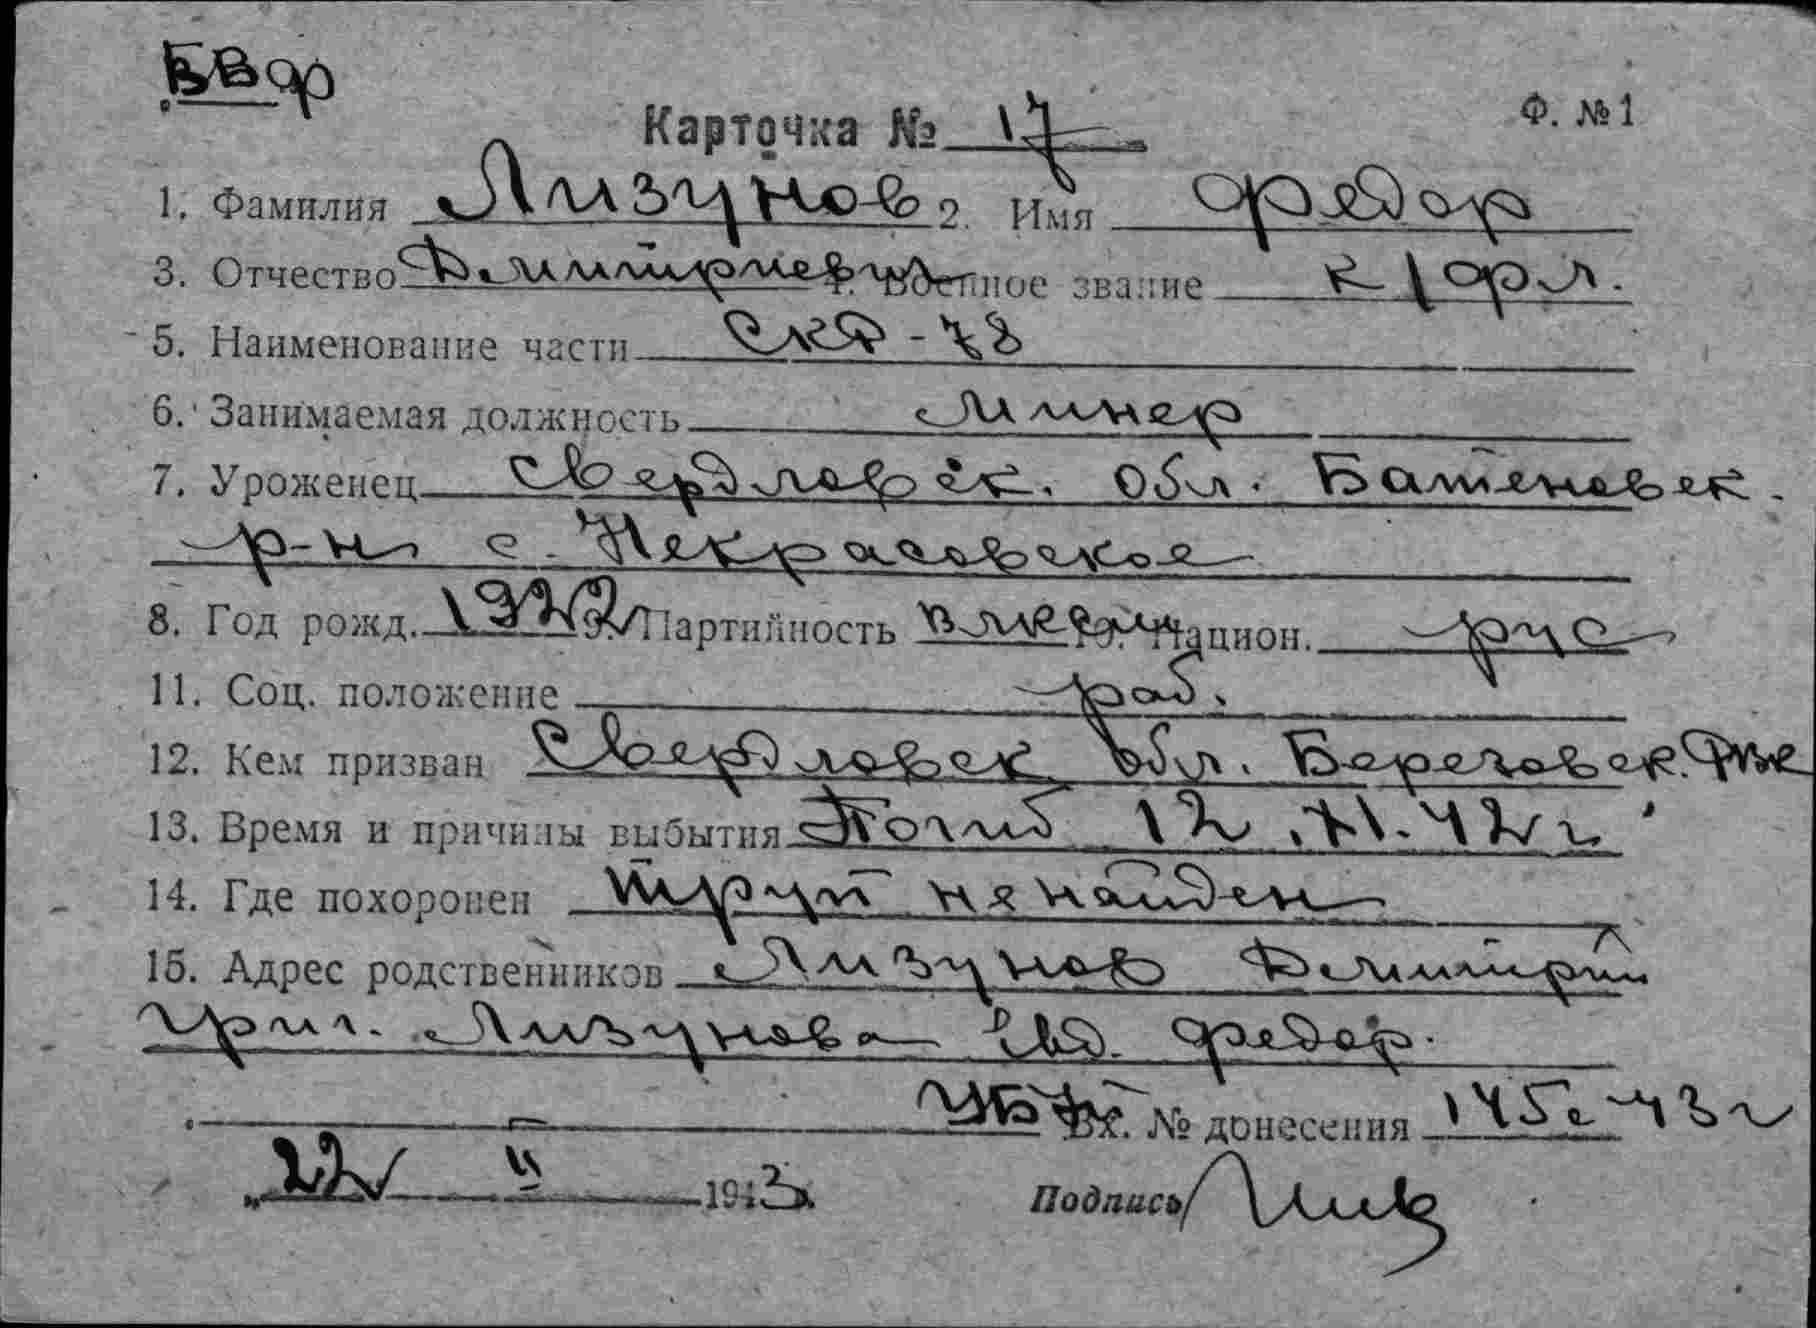 БВФ
Карточка № 17 Ф. № 1
1. Фамилия Лизунов 2. Имя Федор
3. Отчество Дмитриевич 4. Военное звание к/фл.
5. Наименование части СКА-78
6. Занимаемая должность минер
7. Уроженец Свердловск. обл. Батеновск.
р-н с. Некрасовское
8. Год рожд. 1922 9. Партийность влксм 10. Национ. рус
11. Соц. положение раб.
12. Кем призван Свердловск обл. Березовск. РВК
13. Время и причины выбытия Погиб 12.XI.42 г
14. Где похоронен труп не найден
15. Адрес родственников Лизунов Дмитрий
Григ. Лизунова Евд. Федор.
Вх. № донесения 145с-43 г
„22 II 1943
Подпись